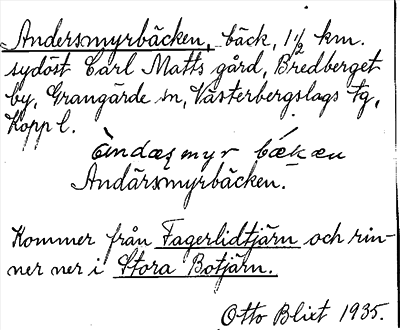 Andersmyrbäcken, bäck, 1½ km.
sydöst Carl Matts gård, Bredberget
by, Grangärde sn, Västerbergslags tg,
Kopp l.
myr
Andärsmyrbäcken.
Kommer från Fagerlidtjärn och rin-
ner ner i Stora Botjärn.
Otto Blixt 1935.